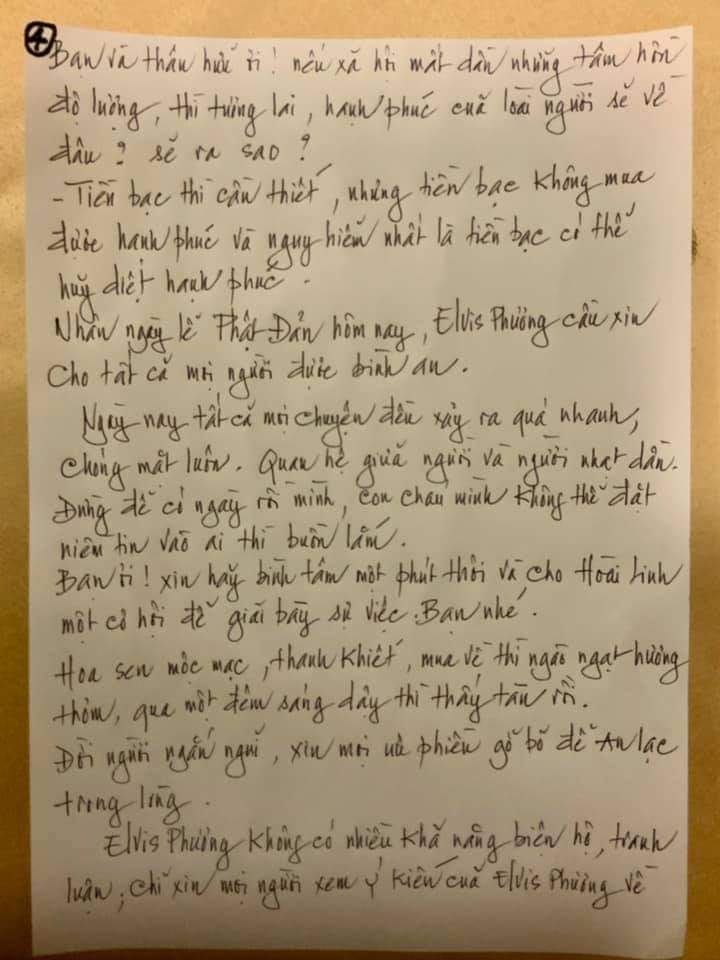 4
Bạn và thân hữu ơi! nếu xã hội mất dần những tâm hồn
độ lượng, thì tương lai, hạnh phúc của loài người sẽ về
đâu? sẽ ra sao?
- Tiền bạc thì cần thiết, nhưng tiền bạc không mua
được hạnh phúc và nguy hiểm nhất là tiền bạc có thể
huỷ diệt hạnh phúc.
Nhân ngày lễ Phật Đản hôm nay, Elvis Phương cầu xin
cho tất cả mọi người được bình an.
Ngày nay tất cả mọi chuyện đều xảy ra quá nhanh,
chóng mặt luôn. Quan hệ giữa người và người nhạt dần.
Đừng để có ngày rồi mình, con cháu mình không thể đặt
niềm tin vào ai thì buồn lắm.
Bạn ơi! xin hãy bình tâm một phút thôi và cho Hoài Linh
một cơ hội để giải bày sự việc. Bạn nhé.
Hoa sen mộc mạc, thanh khiết, mua về thì ngào ngạt hương
thơm, qua một đêm sáng dậy thì thấy tàn rồi.
Đời người ngắn ngủi, xin mọi ưu phiền gỡ bỏ để An lạc
trong lòng.
Elvis Phương không có nhiều khả năng biện hộ, tranh
luận; chỉ xin mọi người xem ý kiến của Elvis Phương về